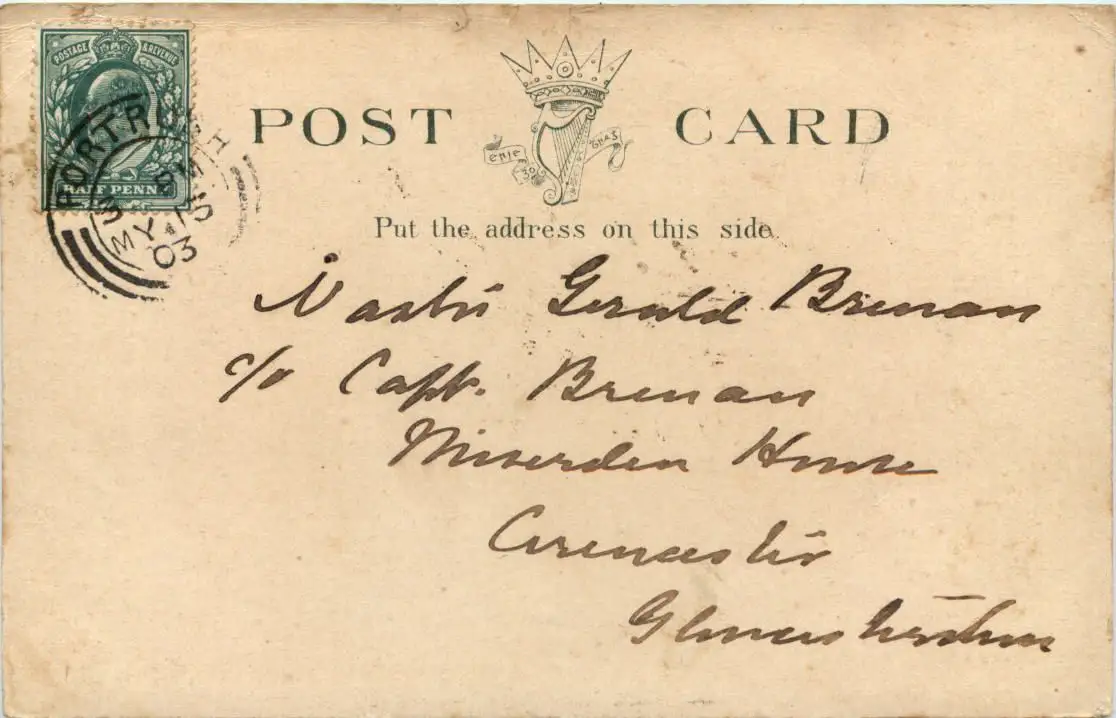 POSTAGE & REVENUE
HALF PENNY
PORTRUSH
MY 15
03
POST CARD
Put the address on this side.
Master Gerald Brenan
c/o Capt. Brenan
Miserden House
Cirencester
Gloucestershire